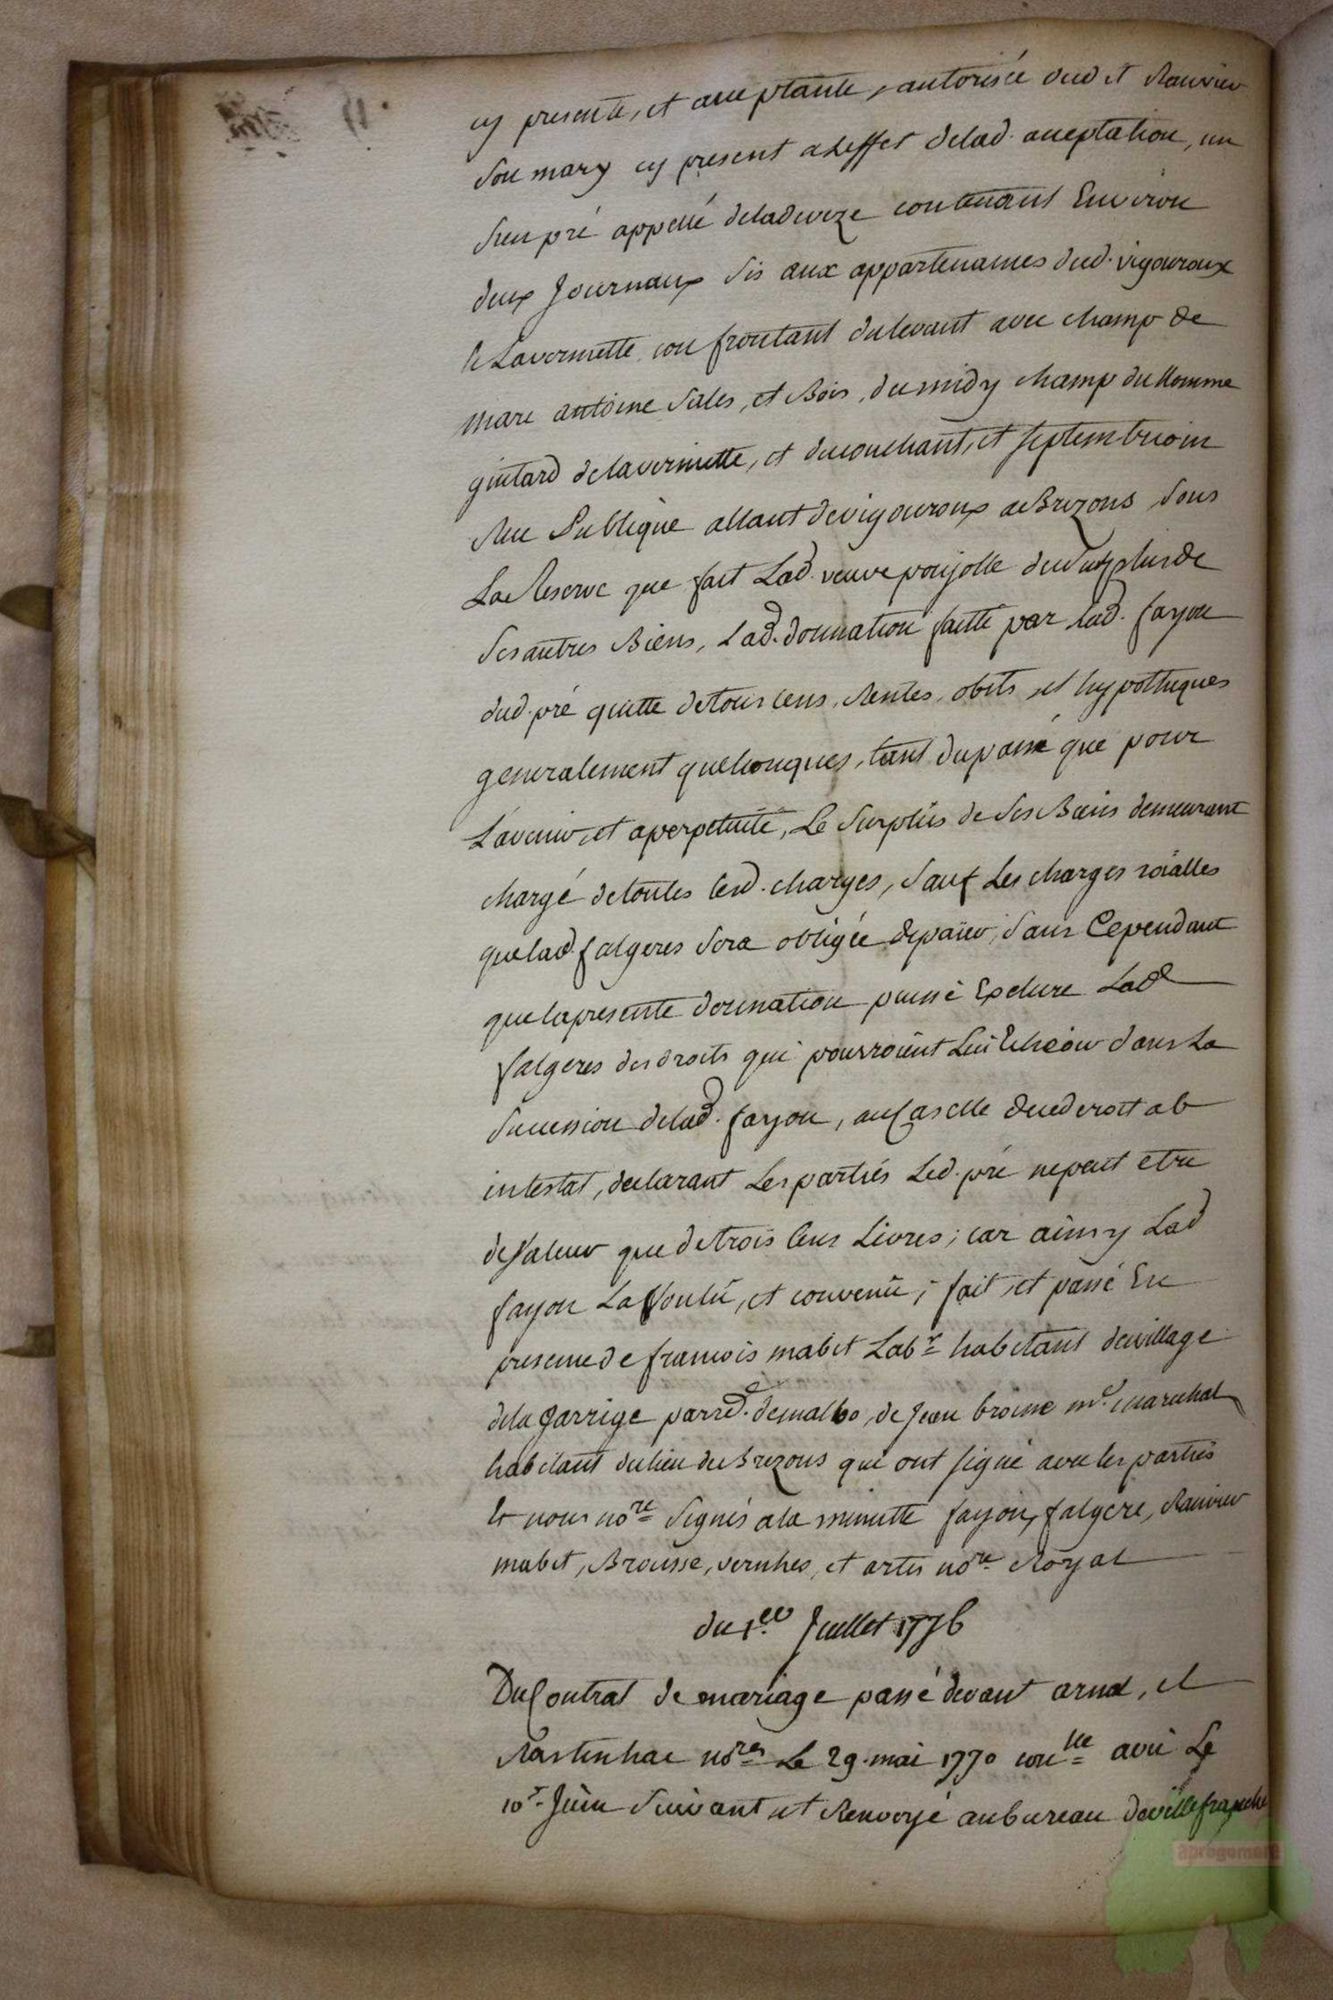 cy presente, et acceptante, autorisée dud et Rauvier
Son mary cy present a Leffet delad. acceptation, un
Sieu pré appellé deladeveze contenant Environ
deux Journaux Sis aux appartenances dud. vigouroux
& Lavermette, confrontant dulevant avec champ de
marc antoine Sales, et Bois, dumidy champ du Nomme
guitard delavermette, et ducouchant, et septembrioin
Rue Publique allant devigouroux a Brezons Sous
La Reserve que fait Lad. veuve poujolle du Surplus de
Ses autres Biens, Lad. donnation faitte par lad. fayon
dud. pré quitte detous cens, Rentes, obits, et hypotheques
generalement quelconques, tant dupassé que pour
L'avenir, et aperpetuité, Le Surplus de Ses Biens demeurant
chargé detoutes lesd. charges, Sauf Les charges roialles
quelad. falgeres Sera obligée depaier, Sans Cependant
que lapresente donnation puisse Exclure Lade
falgeres des droits qui pourroient Lui Echeoir dans La
Succession delad. fayon, au Cas elle decederoit ab
intestat, declarant Les partiés Led. pré nepeut etre
deValeur que detrois Cens Livres; car ainsy Lad
fayon La Voulu, et convenu; fait, et passé En
presence de francois mabit Labr. habitant duvillage
dela Jarrige parrde. demalbo, de Jean brousse md. marechal
habitant dulieu de Brezons qui ont signé avec les partiés
& nous nore. Signés ala minutte fayon, falgere, Rauvier
mabit, Brousse, vernhes, et artis nore. Royal
du 1er Juillet 1776
Du Contrat de mariage passé devant arnal, et
Rastinhac nores Le 29. mai 1770 conlle avii Le
10r. Juin Suivant et Renvoyé aubureau devillefranche
aprogemere